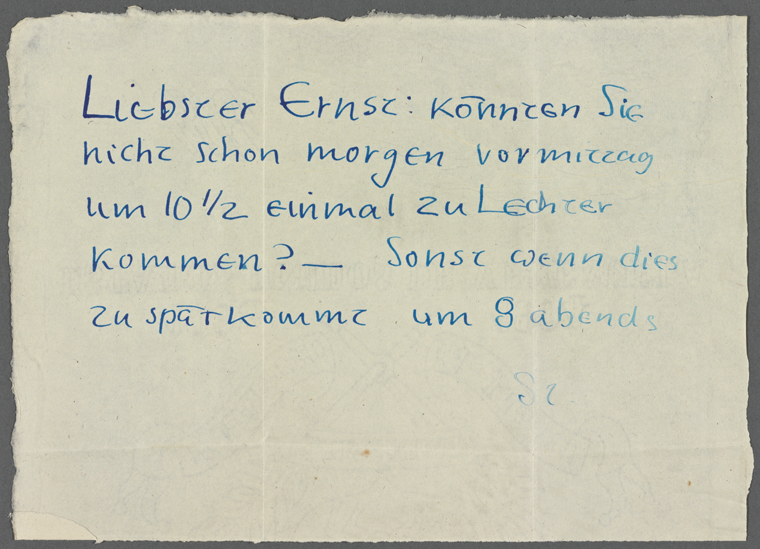 Liebster Ernst: könnten Sie
nicht schon morgen vormittag
um 10 1/2 einmal zu Lechter
kommen? — Sonst wenn dies
zu spät kommt um 8 abends
St